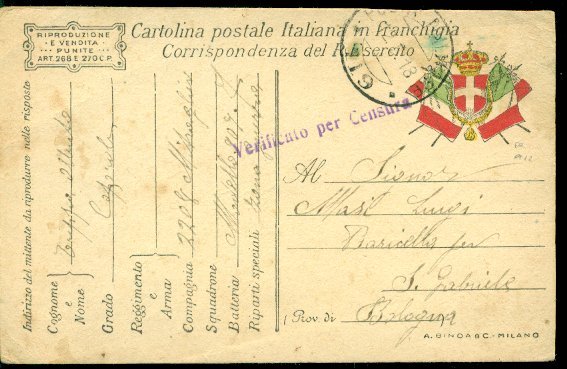 RIPRODUZIONE
E VENDITA
PUNITE
ART. 268 E 270 C.P.
Cartolina postale Italiana in franchigia
Corrispondenza del R. Esercito
Verificato per Censura
Indirizzo del mittente da riprodurre nelle risposte
Cognome
e
Nome
Grado
Reggimento
e
Arma
Compagnia 2208 Mitraglieri
Squadrone
Batteria
Riparti speciali Zona
Al Signor
Masi Luigi
Baricella per
S. Gabriele
(Prov. di Bologna)
A. BINDA & C. - MILANO